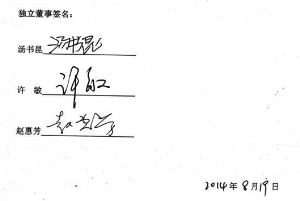 独立董事签名：
汤书昆 汤书昆
许 敏 许敏
赵惠芳 赵惠芳
2014年8月19日